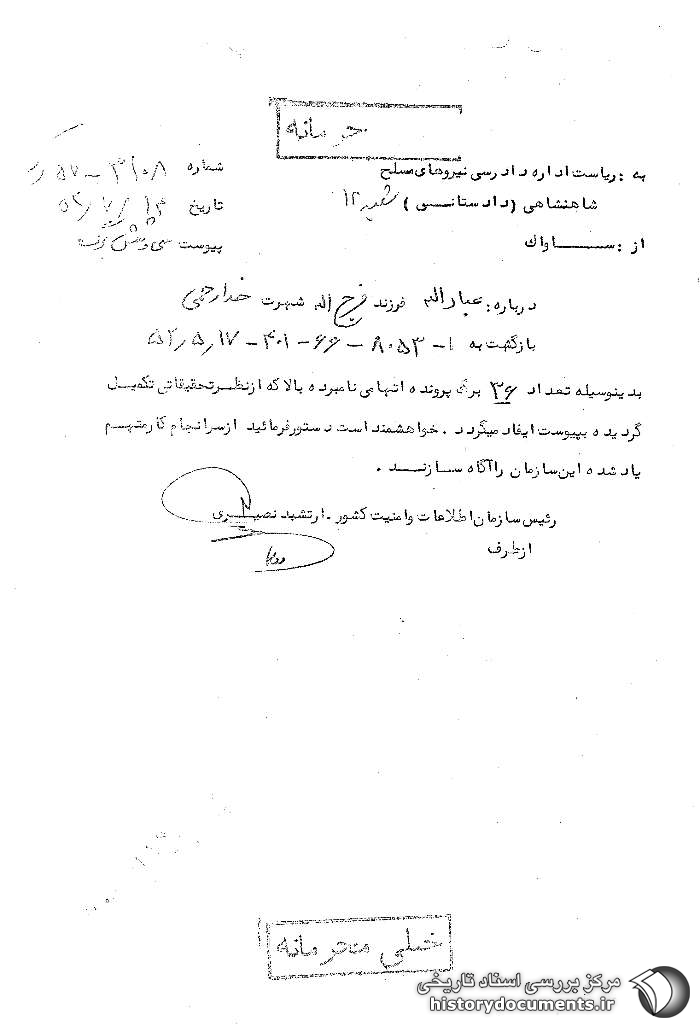 محرمانه
به : ریاست اداره دادرسی نیروهای مسلح
شاهنشاهی (دادستانی) شعبه ۱۲
از : ساواک
شماره ۳۱۰۸
تاریخ
پیوست سی و شش برگ
درباره : عباداله فرزند فرج اله شهرت خدارحمی
بازگشت به ۱-۸۰۵۳-۶۶-۴۰۱-۵۲/۵/۱۷
بدینوسیله تعداد ۳۶ برگ پرونده اتهامی نامبرده بالا که از نظر تحقیقاتی تکمیل
گردیده بپیوست ایفاد میگردد . خواهشمند است دستور فرمائید از سرانجام کار متهم
یاد شده این سازمان را آگاه سازند .
رئیس سازمان اطلاعات و امنیت کشور . ارتشبد نصیری
از طرف
خیلی محرمانه
مرکز بررسی اسناد تاریخی
historydocuments.ir